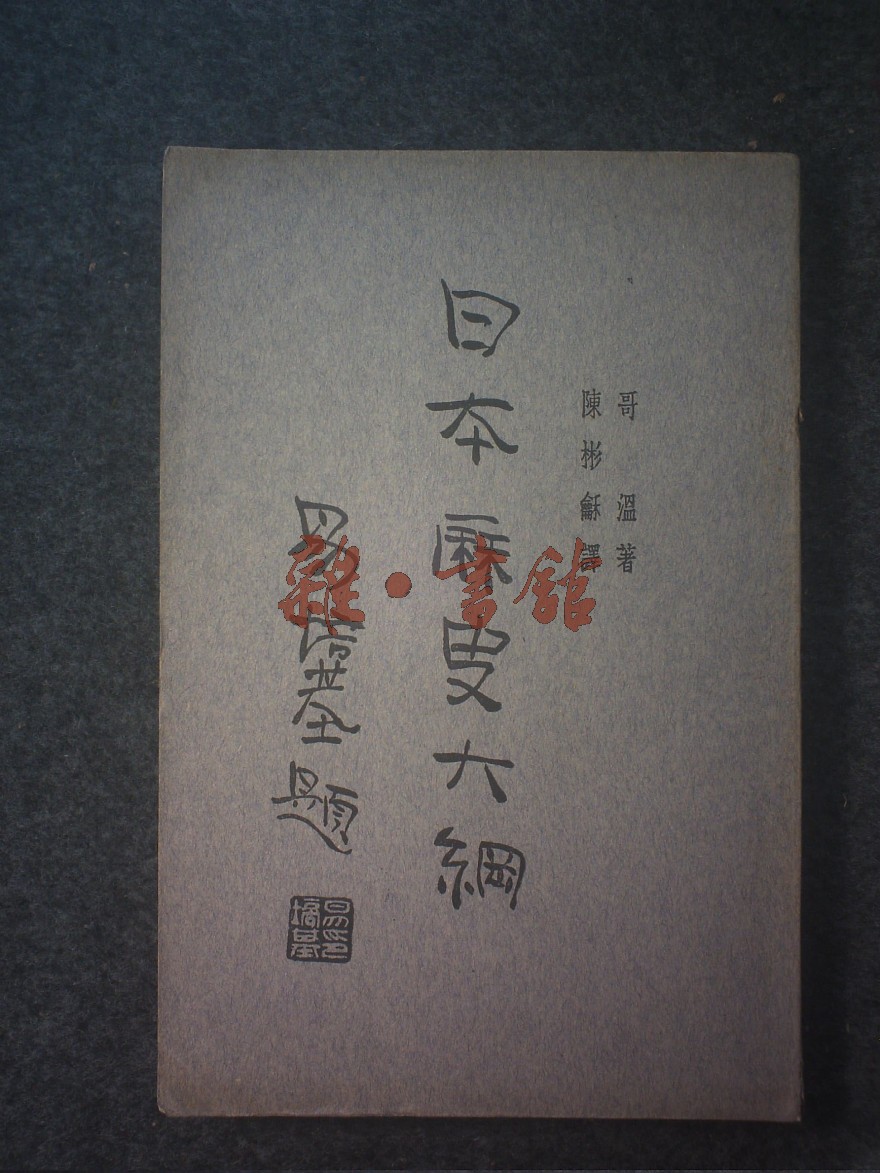 哥溫著
陳彬龢譯
日本厤史大綱
易培基題
易印培基
雜·書舘